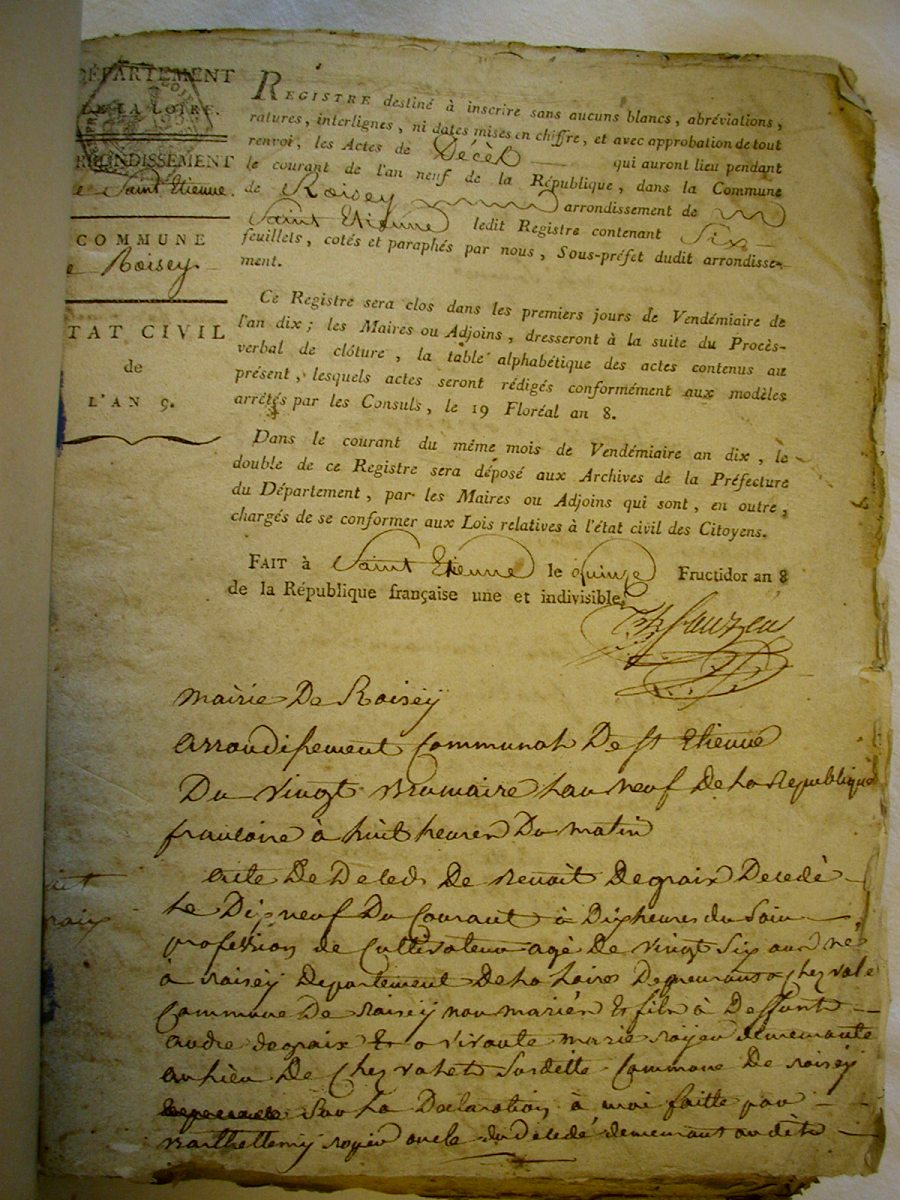 DÉPARTEMENT
DE LA LOIRE.
ARRONDISSEMENT
de Saint Etienne.
COMMUNE
de Roisey
ETAT CIVIL
de
L'AN 9.
REGISTRE destiné à inscrire sans aucuns blancs, abréviations,
ratures, interlignes, ni dates mises en chiffre, et avec approbation de tout
renvoi, les Actes de Décès qui auront lieu pendant
le courant de l'an neuf de la République, dans la Commune
de Roisey arrondissement de
Saint Etienne ledit Registre contenant Six
feuillets, cotés et paraphés par nous, Sous-préfet dudit arrondisse-
ment.
Ce Registre sera clos dans les premiers jours de Vendémiaire de
l'an dix; les Maires ou Adjoins, dresseront à la suite du Procès-
verbal de clôture, la table alphabétique des actes contenus au
présent, lesquels actes seront rédigés conformément aux modèles
arrêtés par les Consuls, le 19 Floréal an 8.
Dans le courant du même mois de Vendémiaire an dix, le
double de ce Registre sera déposé aux Archives de la Préfecture
du Département, par les Maires ou Adjoins qui sont, en outre,
chargés de se conformer aux Lois relatives à l'état civil des Citoyens.
FAIT à Saint Etienne le quinze Fructidor an 8
de la République française une et indivisible.
mairie De Roisey
arrondissement Communal De st Etienne
Du vingt Brumaire lan neuf De la Republique
francoise à huit heures Du matin
acte De Deces De Benoit Degraix Decedè
Le Dixneuf Du Courant à Dix heures du Soir
profession de Cultivateur agè De vingt Six ans né
à Roisey Departement De la Loire Demeurant
Commune De Roisey non marié fils à Deffunt
andre degraix & a vivante marie Royer demeurante
au lieu De Chez valet Surditte Commune De roisey
Sur La Declaration à moi faitte par
Barthellemy royer oncle du Décedé demeurant audit